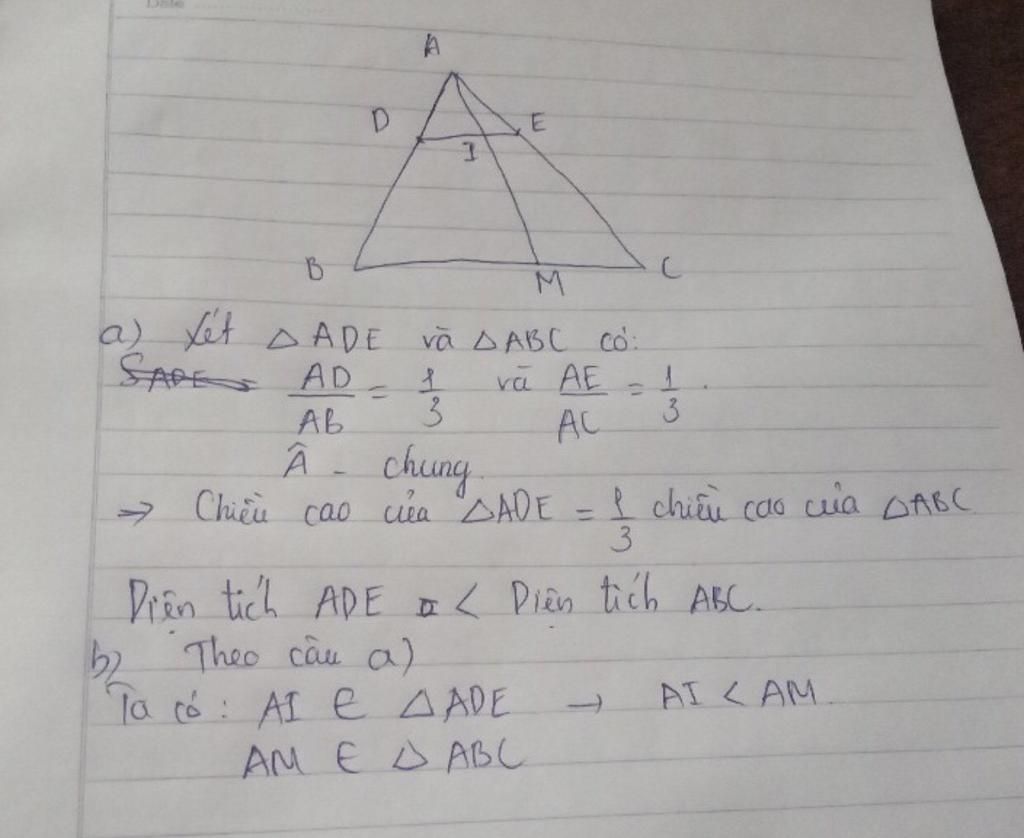 Date
A
D E
I
B M C
a) Xét △ADE và △ABC có:
AD/AB = 1/3 và AE/AC = 1/3.
Â - chung.
→ Chiều cao của △ADE = 1/3 chiều cao của △ABC
Diện tích ADE < Diện tích ABC.
b) Theo câu a)
Ta có: AI ∈ △ADE → AI < AM.
AM ∈ △ABC